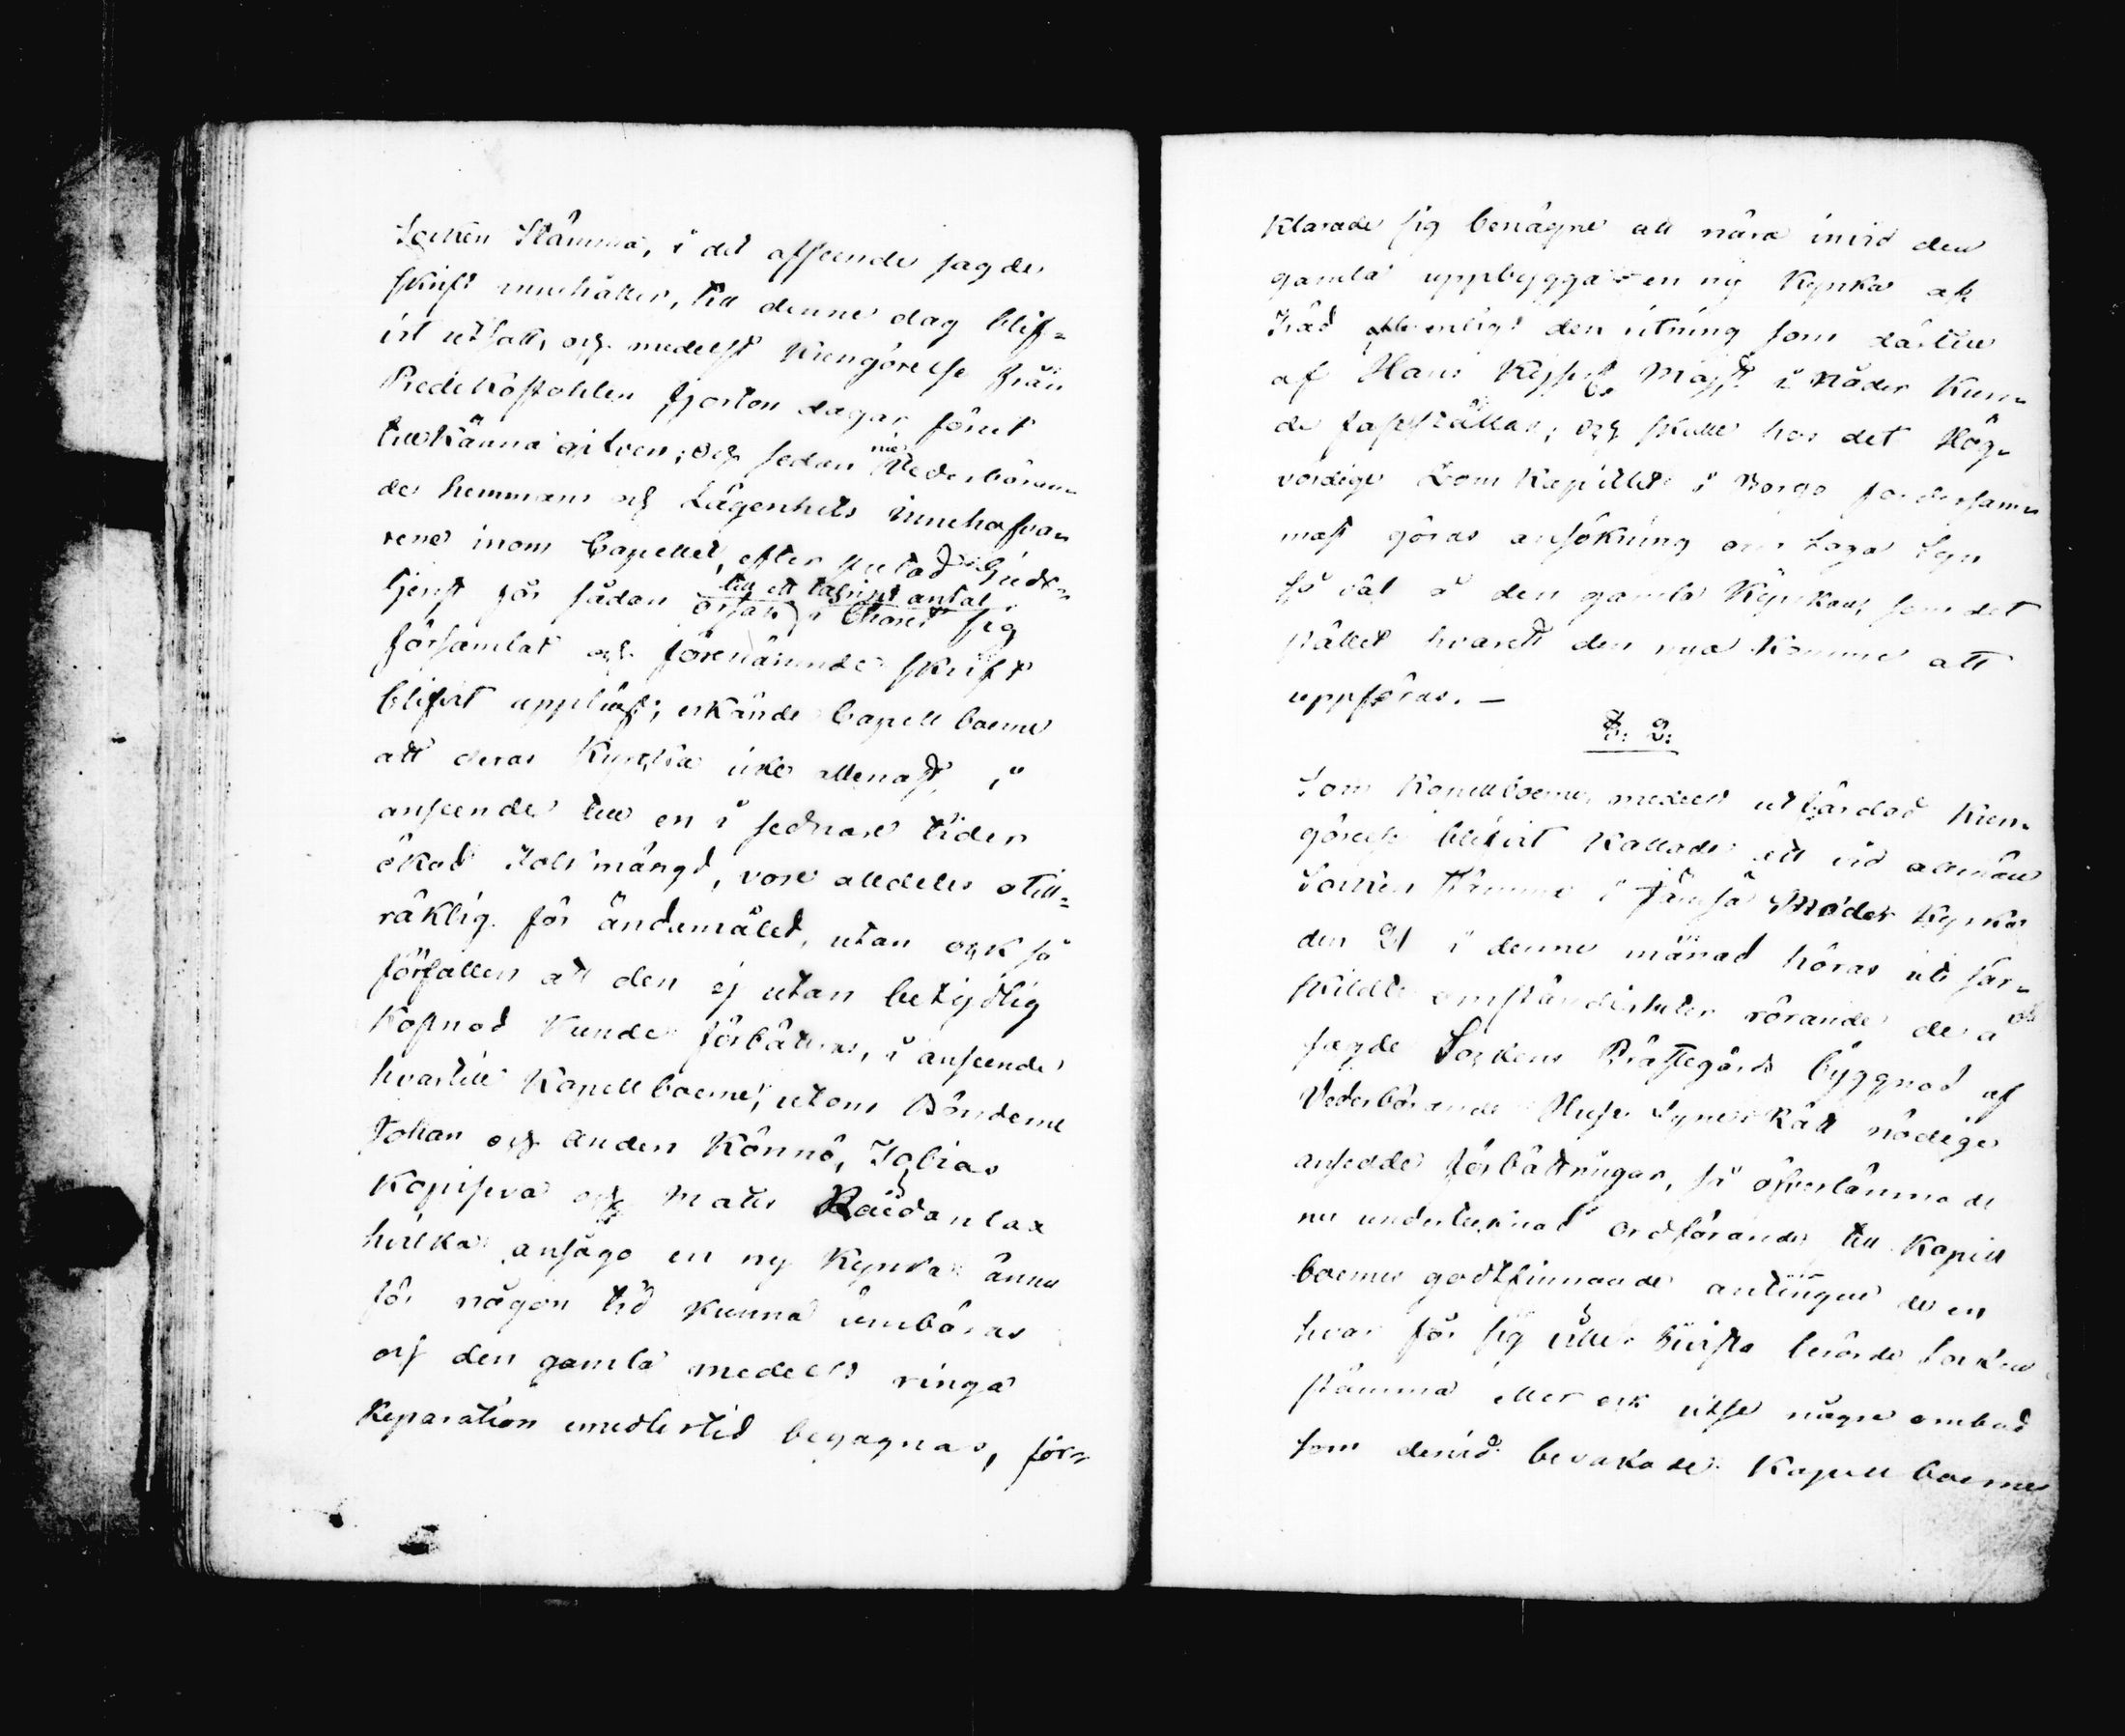 Socken Stämma, i det afseende sagde
skrift innehåller, till denne dag blif=
vit utsatt, och medelst Kungörelse från
Predikostohlen fjorton dagar förut
tillkänna gifven; och sedan Vederböran=
de hemmans och Lägenhets innehafva=
rene inom Capellet, efter slutad Guds=
tjenst för sådan orsak
till ett talrikt antal
i Choret sig
församlat och förenämnde skrift
blifvit uppläst; erkände Capell boerne
att deras Kyrka icke allenast, i
anseende till en i sednare tider
ökad Folkmängd, vore alldeles otill=
räklig för ändamålet, utan ock så
förfallen att den ej utan betydlig
Kostnad Kunde förbättras, i anseende
hvartill Kapellboerne, utom Bönderne
Johan och Anders Könnö, Tobias
Kopiseva och Matts Raidanlax
hvilka ansågo en ny Kyrka ännu
för någon tid kunna umbäras
och den gamla medelst ringa
Reparation emedlertid begagnas, för=
klarade sig benägne att nära invid den
gamla uppbygga en ny Kyrka af
Träd enligt den ritning som därtill
af Hans Kejserl Majst i Nåder Kun=
de fastställas; och skulle hos det Hög=
vördige Dom Kapitlet i Borgo fordersam=
mast göras ansökning om Laga Syn
så väl å den gamla Kyrkan, som det
stället hvarest den nya komme att
uppföras. –
§. 2.
Som Kapellboerne medelst utfärdad Kun=
görelse blifvit Kallade att vid allmän
Socken Stämma i Jämsä Moder Kyrka
den 21 i denne månad höras uti sär=
skildte omständigheter rörande de a
sagde Sockens Prästegårds byggnad af
Vederbörande Husesynerätt nödige
ansedde förbättringar, så öfverlämnade
nu undertecknad Ordförande till Kapell
boernes godtfinnande antingen de en
hvar för sig ville bivista berörde Socken
stämma eller ock utse någre ombud
som dervid bevakade Kapell boernes